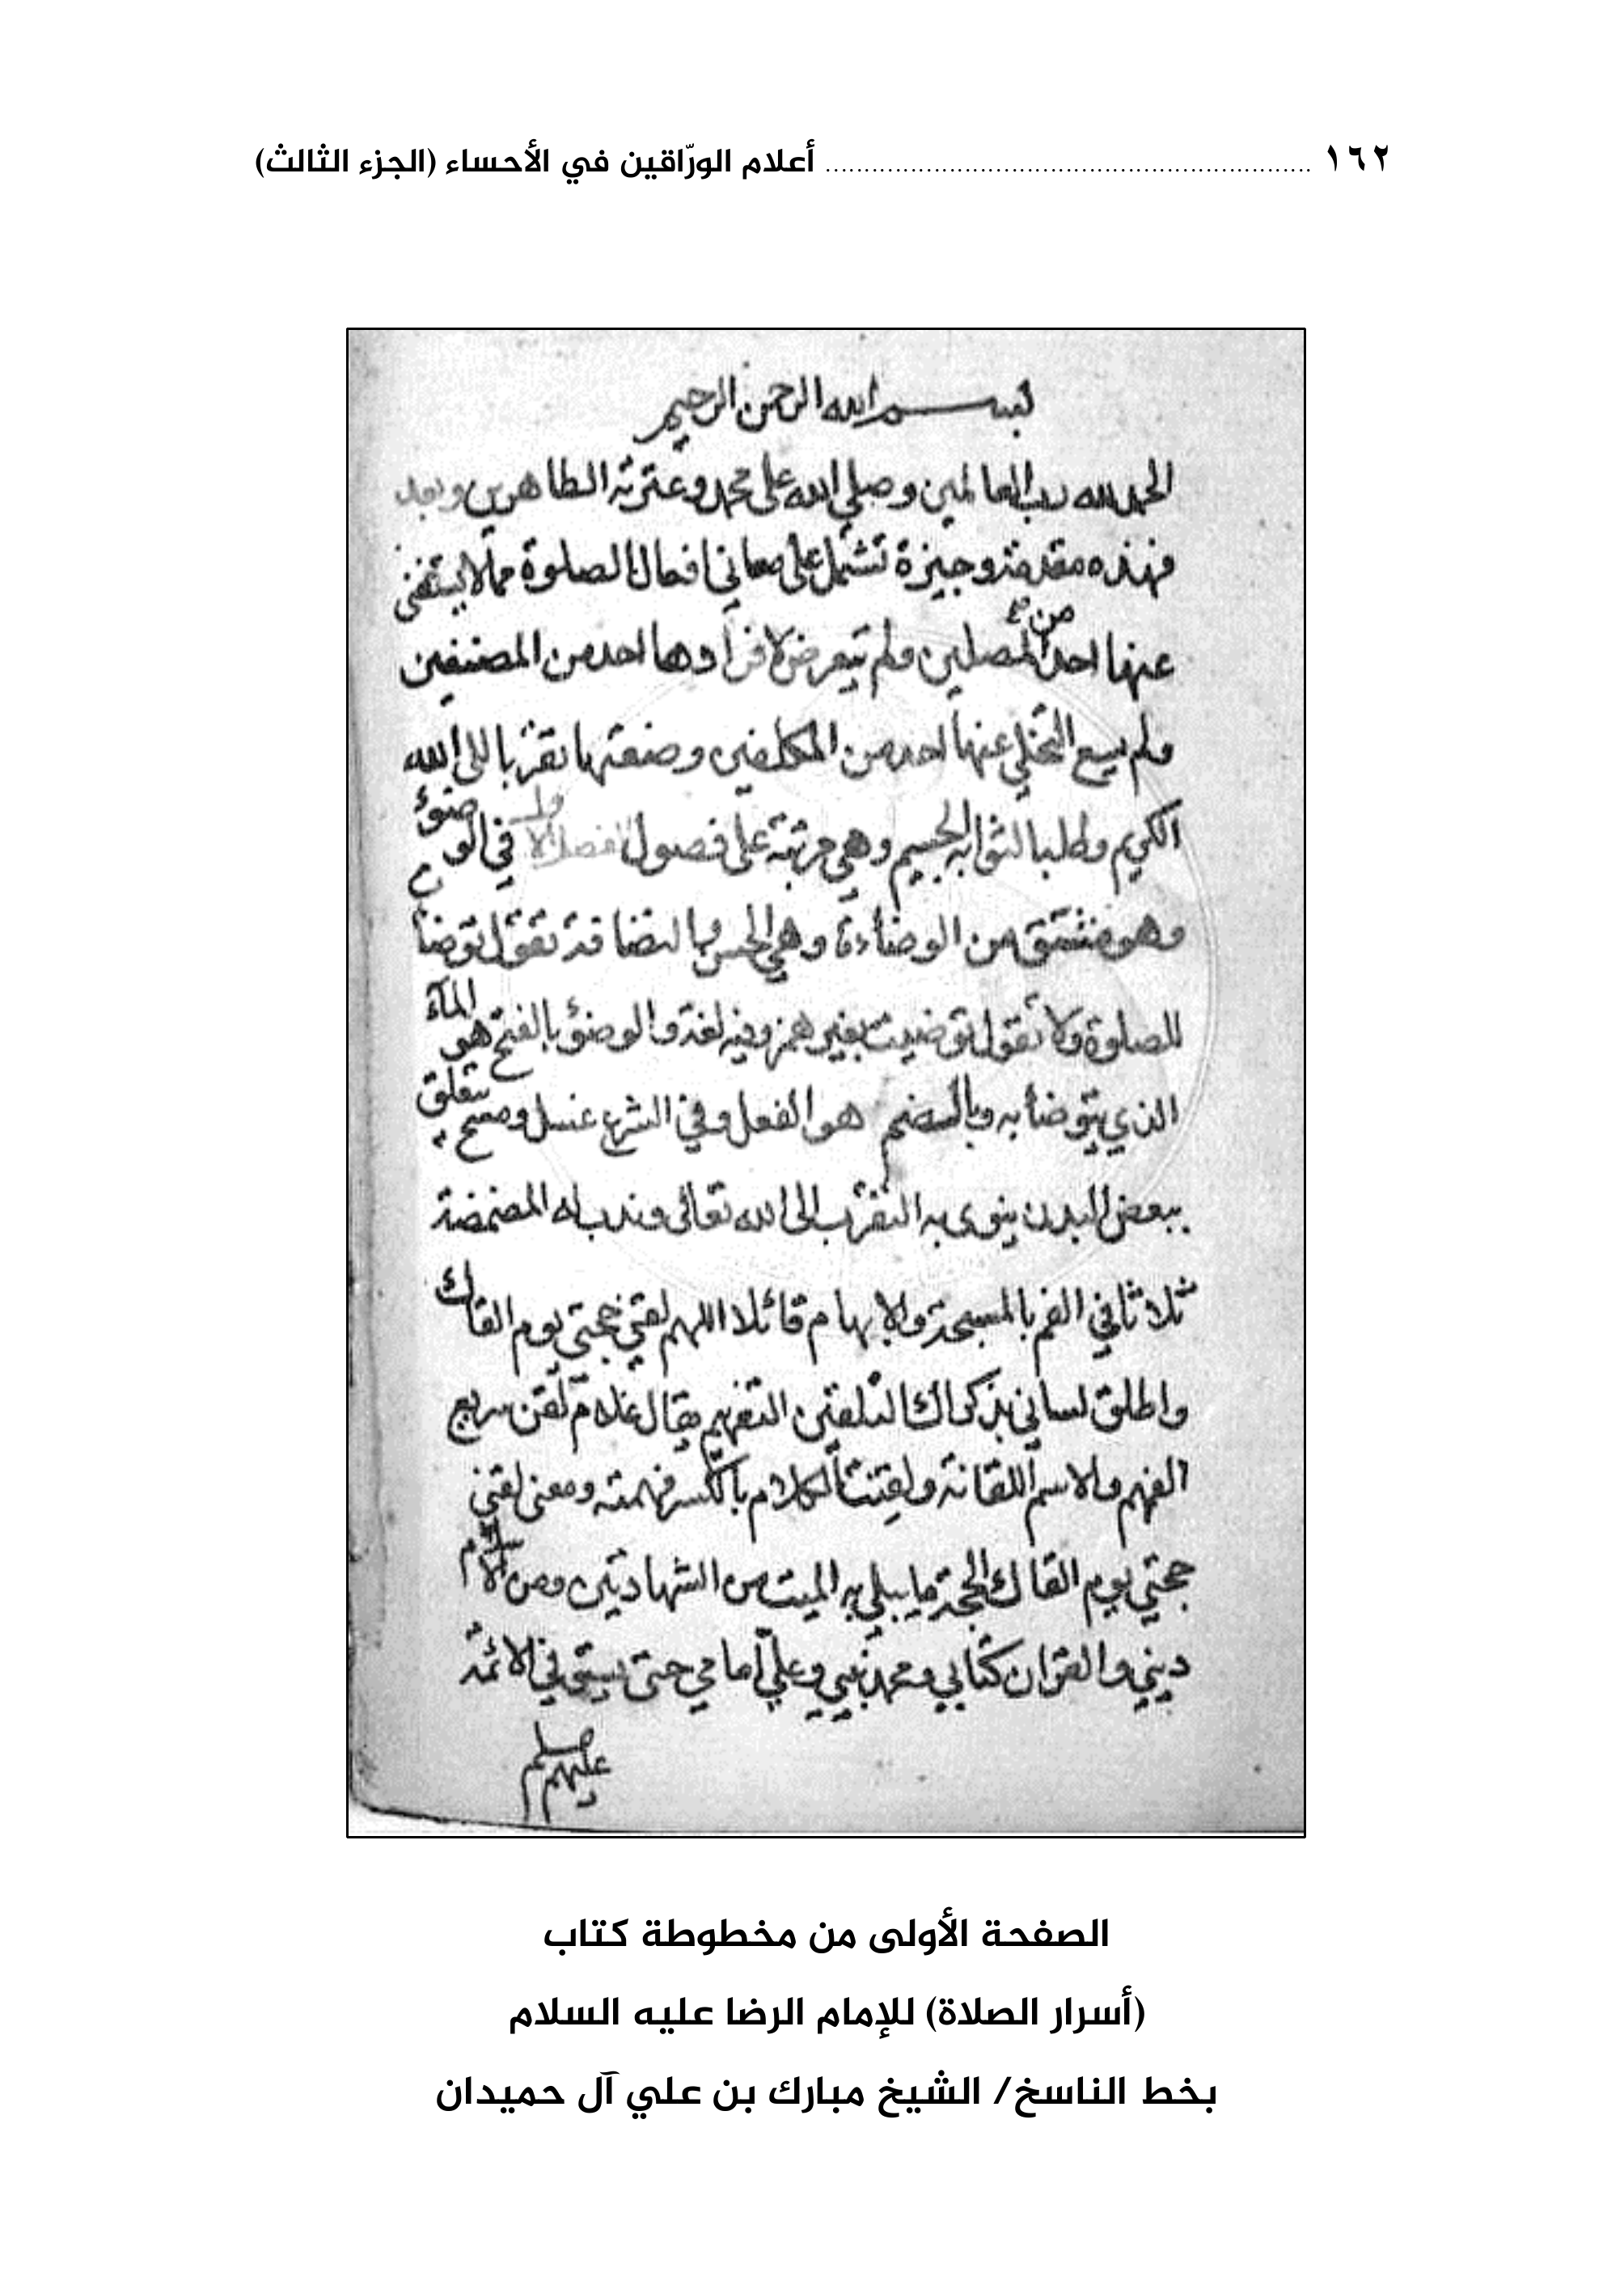 ١٦٢ ........................................................ أعلام الورّاقين في الأحساء (الجزء الثالث)
بسم الله الرحمن الرحيم
الحمد لله رب العالمين وصلى الله على محمد وعترته الطاهرين وبعد
فهذه مقدمة وجيزة تشتمل على معاني افعال الصلوة مما لا يستغني
عنها احد من المصلين ولم يتعرض لافرادها احد من المصنفين
ولم يسع التخلي عنها احد من المكلفين وضعتها تقربا الى الله
الكريم وطلبا لثوابه الجسيم وهي مرتبة على فصول الفصل الاول في الوضوء
وهو مشتق من الوضاءة وهي الحسن والنضافة تقول توضأ
للصلوة ولا تقول توضيت بغير همز وفيه لغة والوضؤ بالفتح هو المآء
الذي يتوضأ به وبالضم هو الفعل وفي الشرع غسل ومسح يتعلق
ببعض البدن ينوى به التقرّب الى الله تعالى وندب له المضمضة
ثلاثا في الفم بالمسبحة والابهام قائلا اللهم لقني حجتي يوم القاك
واطلق لساني بذكراك التلقين التفهيم يقال غلام لقن سريع
الفهم والاسم اللقانة ولقنت الكلام بالكسر فهمته ومعنى لقني
حجتي يوم القاك الحجة ما يبلى به الميت من الشهادتين ومن الاسلام
ديني والقران كتابي ومحمد نبيي وعليّ امامي حتى يستوفي الائمة
عليهم
الصفحة الأولى من مخطوطة كتاب
(أسرار الصلاة) للإمام الرضا عليه السلام
بخط الناسخ/ الشيخ مبارك بن علي آل حميدان